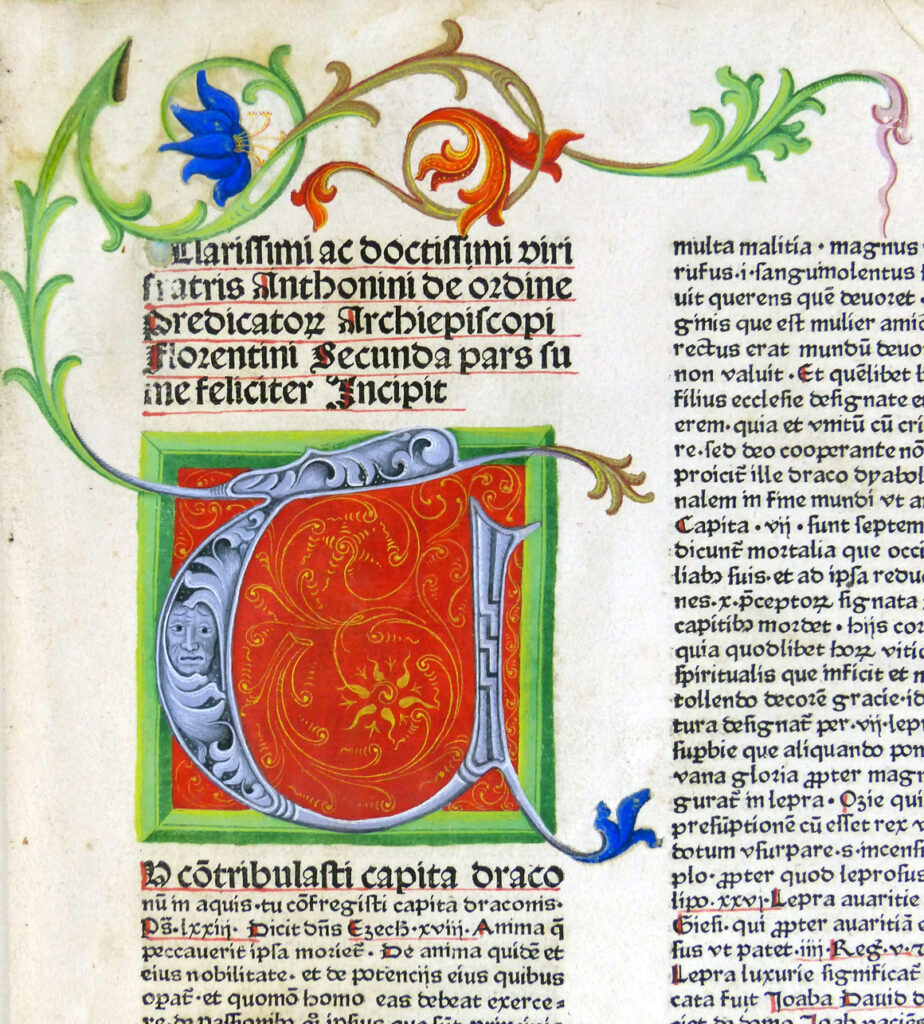 Clarissimi ac doctissimi viri
fratris Anthonini de ordine
predicatoꝝ Archiepiscopi
Florentini Secunda pars su
me feliciter Incipit
U cōtribulasti capita draco
nū in aquis·tu cōfregisti capita draconis·
Ps̄·lxxiij· Dicit dn̄s Ezech̄·xviij· Anima q̄
peccauerit ipsa moriet̄· De anima quidē et
eius nobilitate· et de potencijs eius quibus
opat̄·et quomō homo eas debeat exerce=
multa malitia· magnus
rufus·i·sanguinolentus
uit querens quē deuoret·
ginis que est mulier
rectus erat mundū
non valuit· Et quēlibet
filius ecclesie designate
erem· quia et vnitū cū
re·sed deo cooperante
proicit̄ ille draco
nalem in fine mundi vt
Capita·vij·sunt septem
dicunt̄ mortalia que
suis·et ad ipsa
nes·x·p̄ceptoꝝ signata
capitibꝫ mordet· hijs
quia quodlibet hoꝝ
spiritualis que inficit et
tollendo decorē gracie·
tura designat̄ per·vij·
supbie que aliquando
vana gloria ꝓpter
gurat̄ in lepra· Ozie qui
presūptionē cū esset rex
dotum vsurpare·s·
plo·ꝓpter quod
lipo·xxvj·Lepra auaritie
Giesi·qui ꝓpter auaritiā
sus vt patet·iiij·Reg·v·
Lepra luxurie significat̄
cata fuit Joaba Dauid